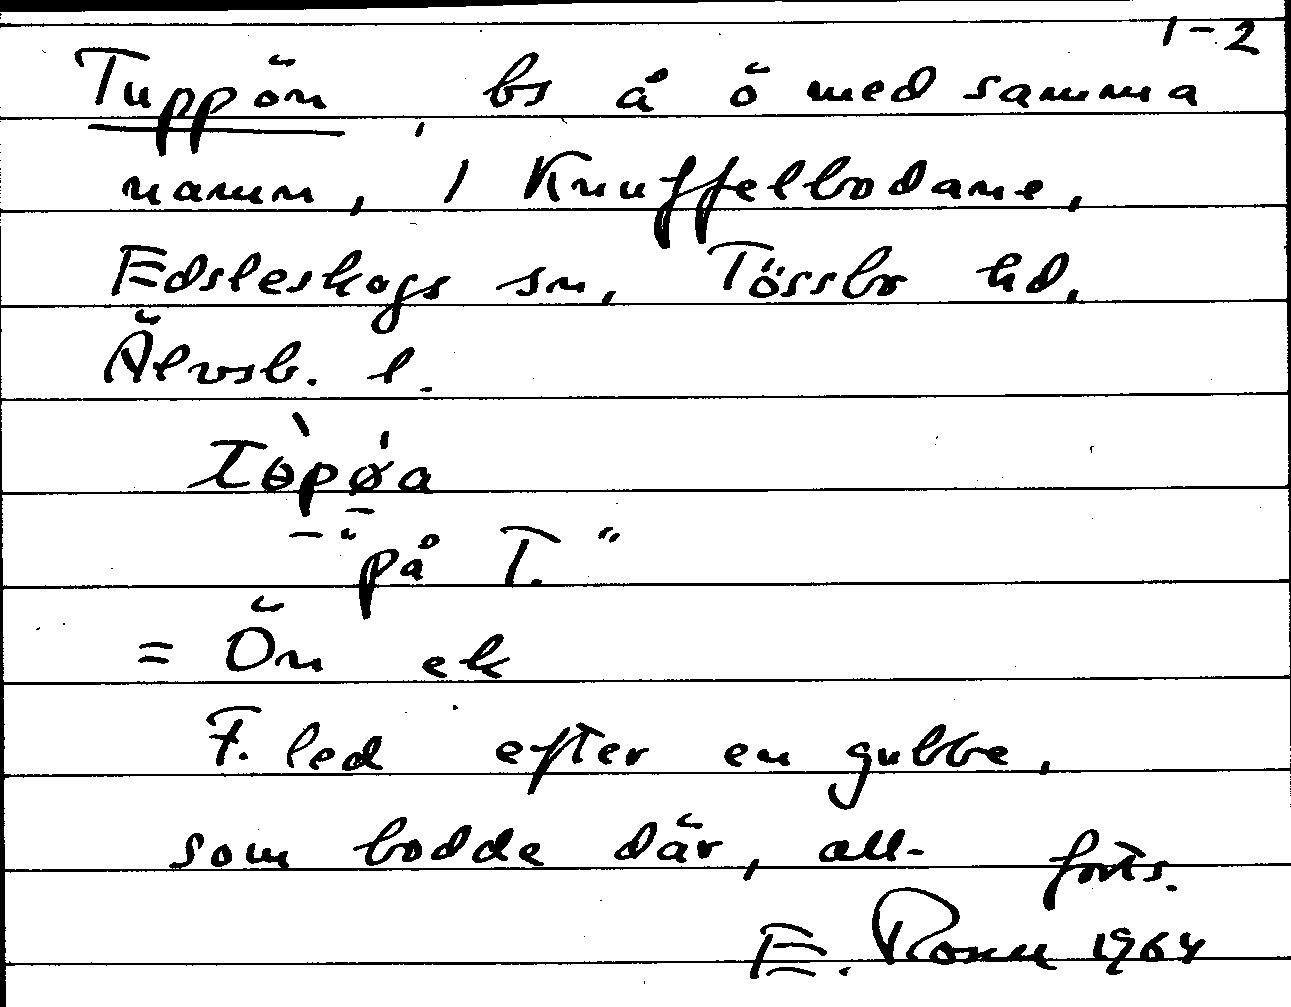 1-2
Tuppön, bs å ö med samma
namn, 1 Knuffelbodane,
Edsleskogs sn, Tössbo hd,
Älvsb. l.
tɵ̀pǿa
— "på T."
= Ön ek
F. led efter en gubbe,
som bodde där, all- forts.
E. Rosén 1964